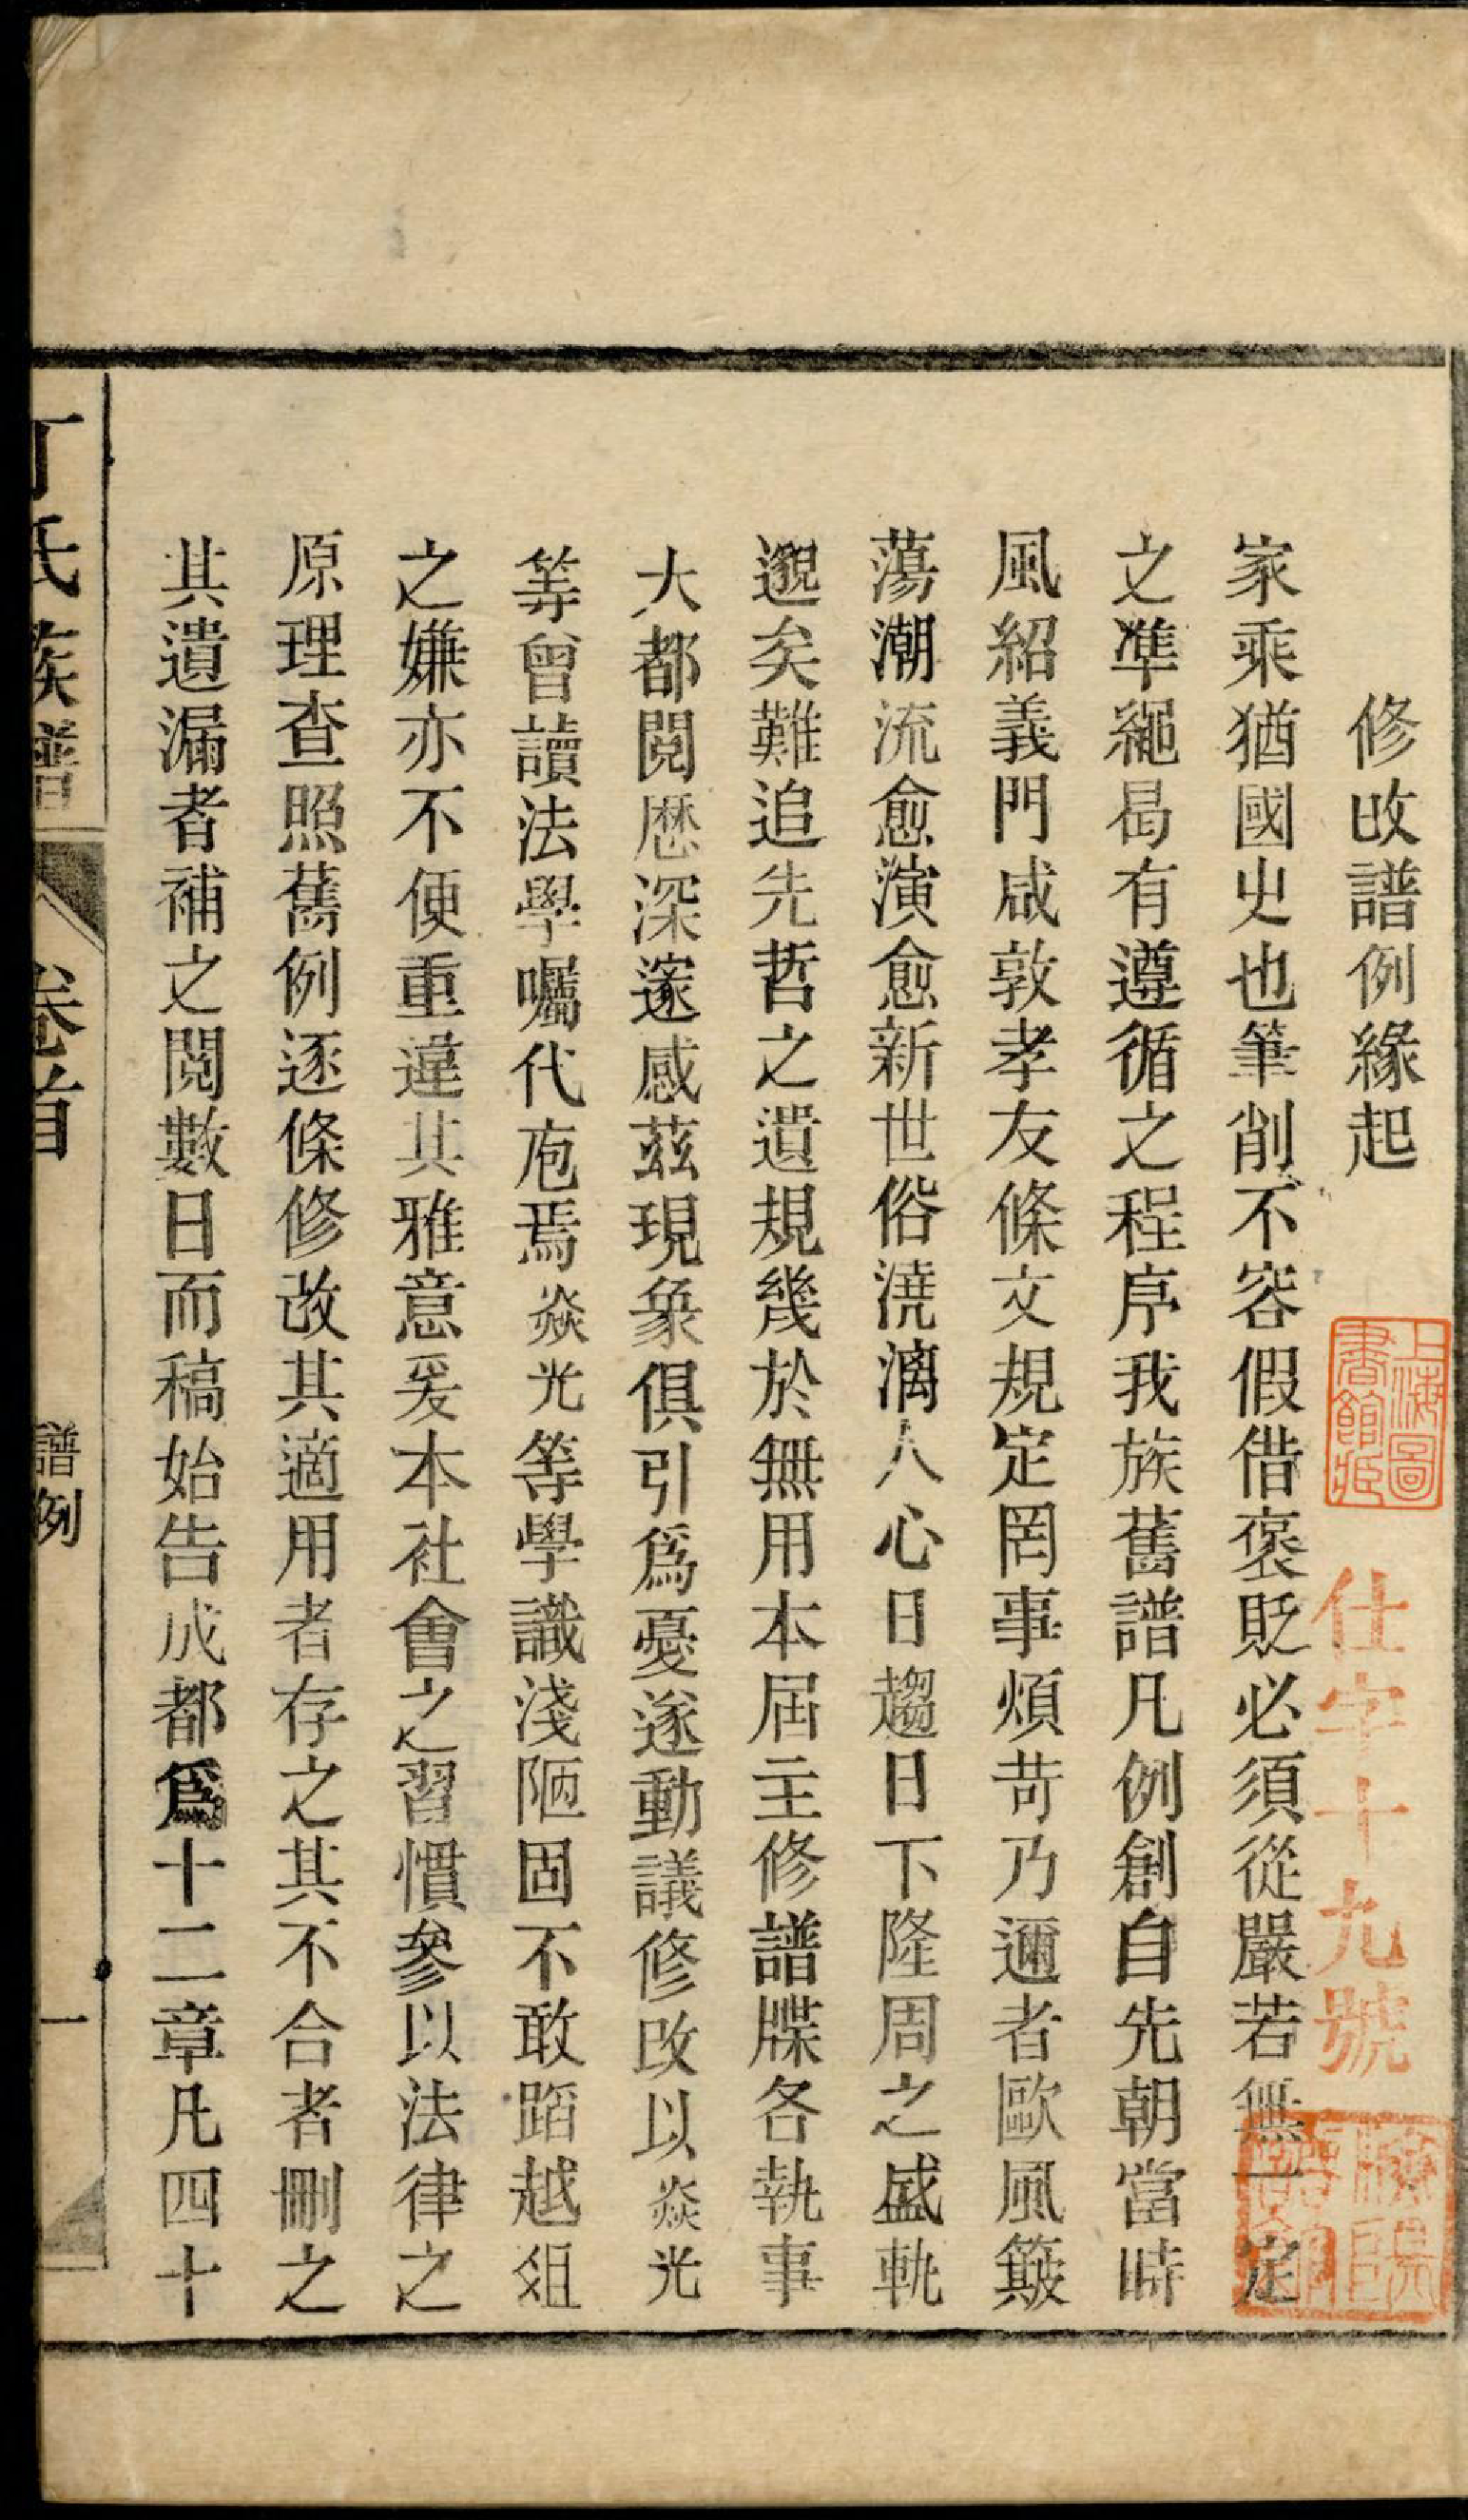 修改譜例緣起
家乘猶國史也筆削不容假借褒貶必須從嚴若無一定
之準繩曷有遵循之程序我族舊譜凡例創自先朝當時
風紹義門咸敦孝友條文規定罔事煩苛乃邇者歐風簸
蕩潮流愈演愈新世俗澆漓人心日趨日下隆周之盛軌
邈矣難追先哲之遺規幾於無用本屆主修譜牒各執事
大都閱歷深邃感茲現象俱引爲憂遂動議修改以焱光
等曾讀法學囑代庖焉焱光等學識淺陋固不敢蹈越俎
之嫌亦不便重違其雅意爰本社會之習慣參以法律之
原理查照舊例逐條修改其適用者存之其不合者刪之
其遺漏者補之閱數日而稿始告成都爲十二章凡四十
丁氏族譜
卷首
譜例
一
上海圖
書館藏
仕字十九號